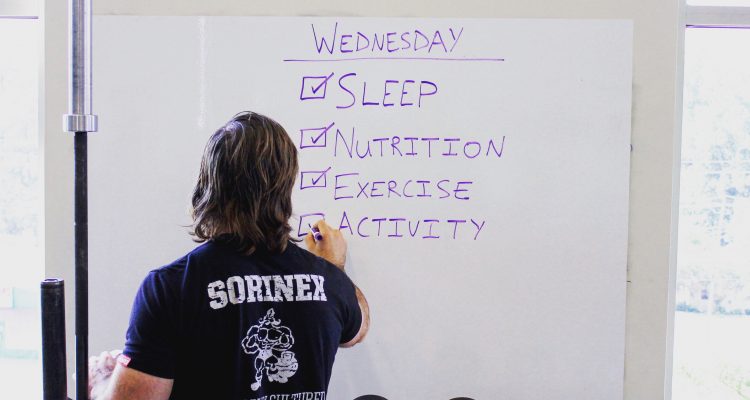 WEDNESDAY
SLEEP
NUTRITION
EXERCISE
ACTIVITY
SORINEX